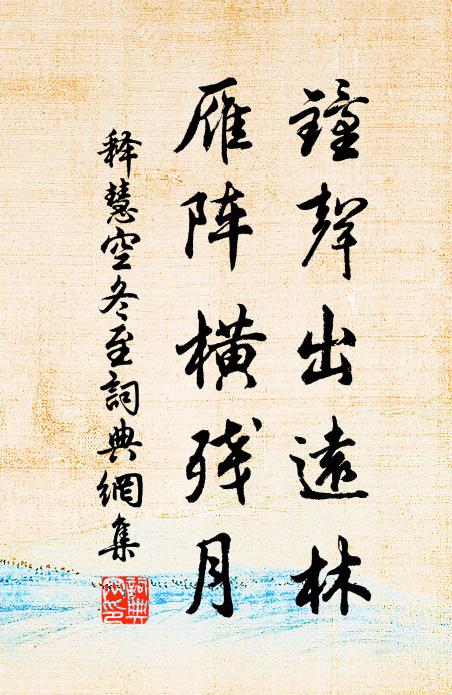 鐘聲出遠林
雁阵橫残月
释慧空冬至詞典網集